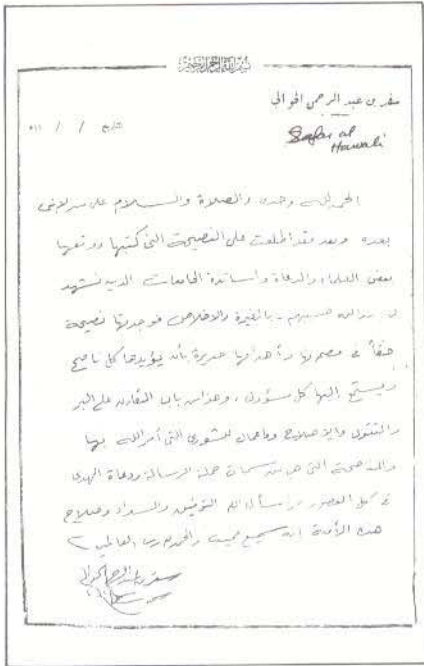 بسم الله الرحمن الرحيم
سفر بن عبد الرحمن الحوالي
Safar al
Hawali
تاريخ / /
الحمد لله وحده والصلاة والسلام على من لا نبي
بعده وبعد فقد اطلعت على النصيحة التي كتبها ووقعها
بعض العلماء والدعاة وأساتذة الجامعات الذين نشهد
بالغيرة والاخلاص فوجدتها نصيحة
حقاً في مضمونها وأهدافها جديرة بأن يؤيدها كل ناصح
ويستمع إليها كل مسؤول، وهذا من باب التعاون على البر
والتقوى والإصلاح للشورى التي أمر الله بها
والمناصحة التي هي من سمات حملة الرسالة ودعاة الهدى
في كل العصور أسأل الله التوفيق والسداد وصلاح
هذه الأمة إنه سميع مجيب والحمد لله رب العالمين
سفر بن عبد الرحمن الحوالي